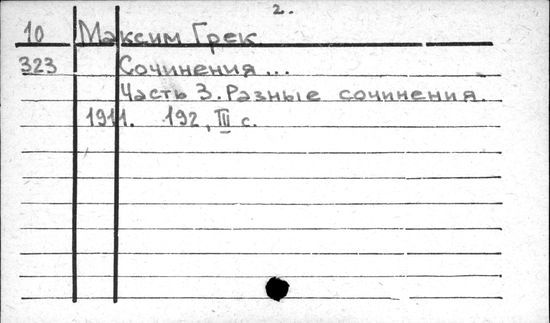 2.
10 Максим Грек.
323 Сочинения ...
Часть 3. Разные сочинения.
1911. 192, III с.